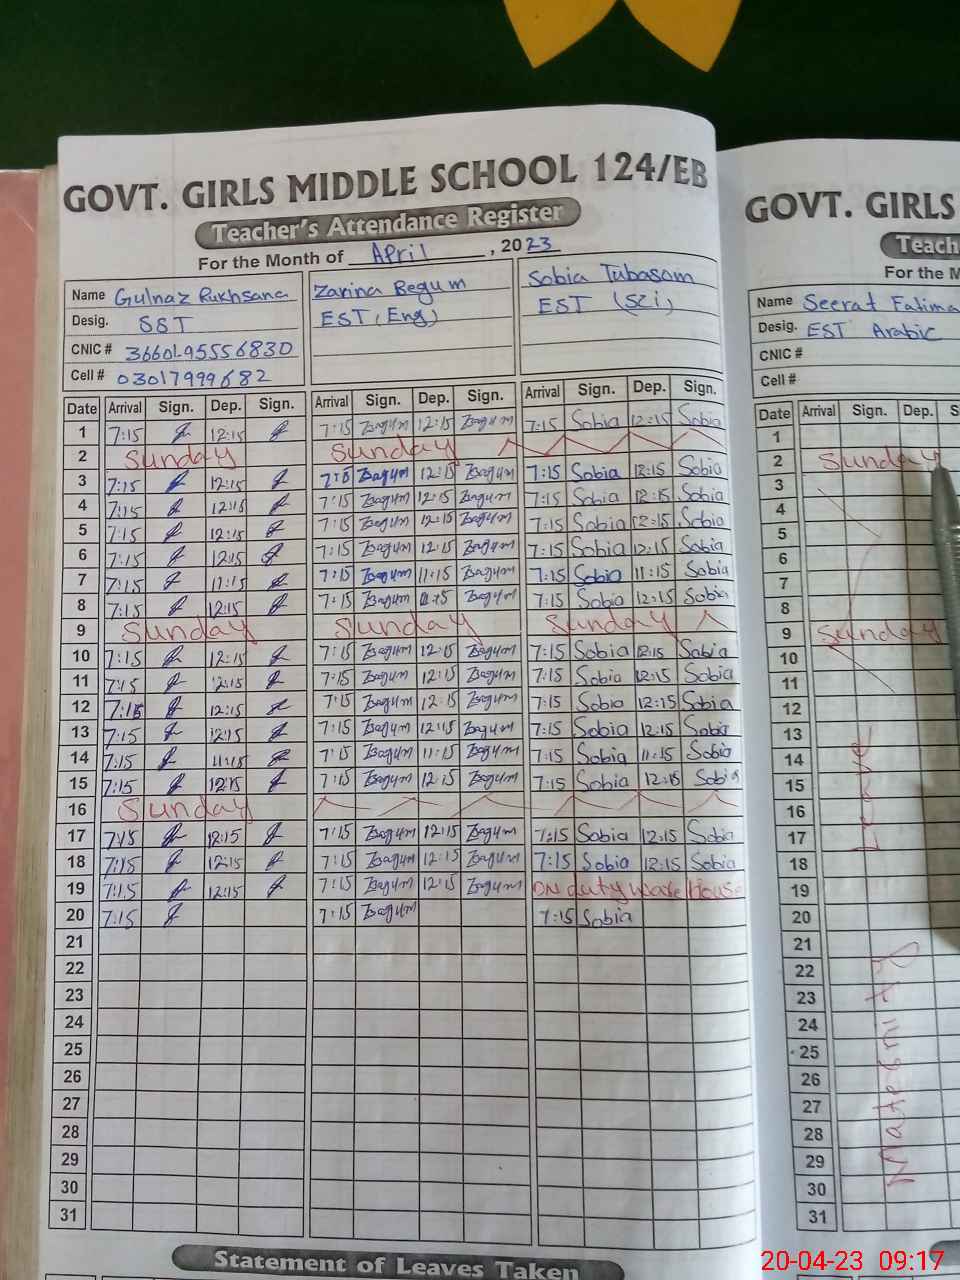 GOVT. GIRLS MIDDLE SCHOOL 124/EB
Teacher's Attendance Register
For the Month of April, 2023
Name Gulnaz Rukhsana
Desig. SST
CNIC # 36601-95556830
Cell # 03017999682
Zarina Begum
EST (Eng)
Sobia Tubasom
EST (Sci)
Date Arrival Sign. Dep. Sign. Arrival Sign. Dep. Sign. Arrival Sign. Dep. Sign.
1 7:15 12:15 7:15 Begum 12:15 Begum 7:15 Sobia 12:15 Sobia
2 Sunday Sunday
3 7:15 12:15 Begum 12:15 Begum 7:15 Sobia 12:15 Sobia
4 7:15 12:15 7:15 Begum 12:15 Begum 7:15 Sobia 12:15 Sobia
5 7:15 12:15 7:15 Begum 12:15 Begum 7:15 Sobia 12:15 Sobia
6 7:15 12:15 7:15 Begum 12:15 Begum 7:15 Sobia 12:15 Sobia
7 7:15 11:15 7:15 Begum 11:15 Begum 7:15 Sobia 11:15 Sobia
8 7:15 12:15 7:15 Begum Begum 7:15 Sobia 12:15 Sobia
9 Sunday Sunday Sunday
10 7:15 12:15 7:15 Begum 12:15 Begum 7:15 Sobia 12:15 Sobia
11 7:15 12:15 7:15 Begum 12:15 Begum 7:15 Sobia 12:15 Sobia
12 7:15 12:15 7:15 Begum 12:15 Begum 7:15 Sobia 12:15 Sobia
13 7:15 12:15 7:15 Begum 12:15 Begum 7:15 Sobia 12:15 Sobia
14 7:15 11:15 7:15 Begum 11:15 Begum 7:15 Sobia 11:15 Sobia
15 7:15 12:15 7:15 Begum 12:15 Begum 7:15 Sobia 12:15 Sobia
16 Sunday
17 7:15 12:15 7:15 Begum 12:15 Begum 7:15 Sobia 12:15 Sobia
18 7:15 12:15 7:15 Begum 12:15 Begum 7:15 Sobia 12:15 Sobia
19 7:15 12:15 7:15 Begum 12:15 Begum ON duty ware House
20 7:15 7:15 Begum 7:15 Sobia
21
22
23
24
25
26
27
28
29
30
31
Statement of Leaves Taken
GOVT. GIRLS
Teach
For the M
Name Seerat Fatima
Desig. EST Arabic
CNIC #
Cell #
Date Arrival Sign. Dep. S
1
2 Sunday
3
4
5
6
7
8
9 Sunday
10
11
12
13
14
15
16
17
18
19
20
21
22
23
24
25
26
27
28
29
30
31
Leave
Maternity
20-04-23 09:17